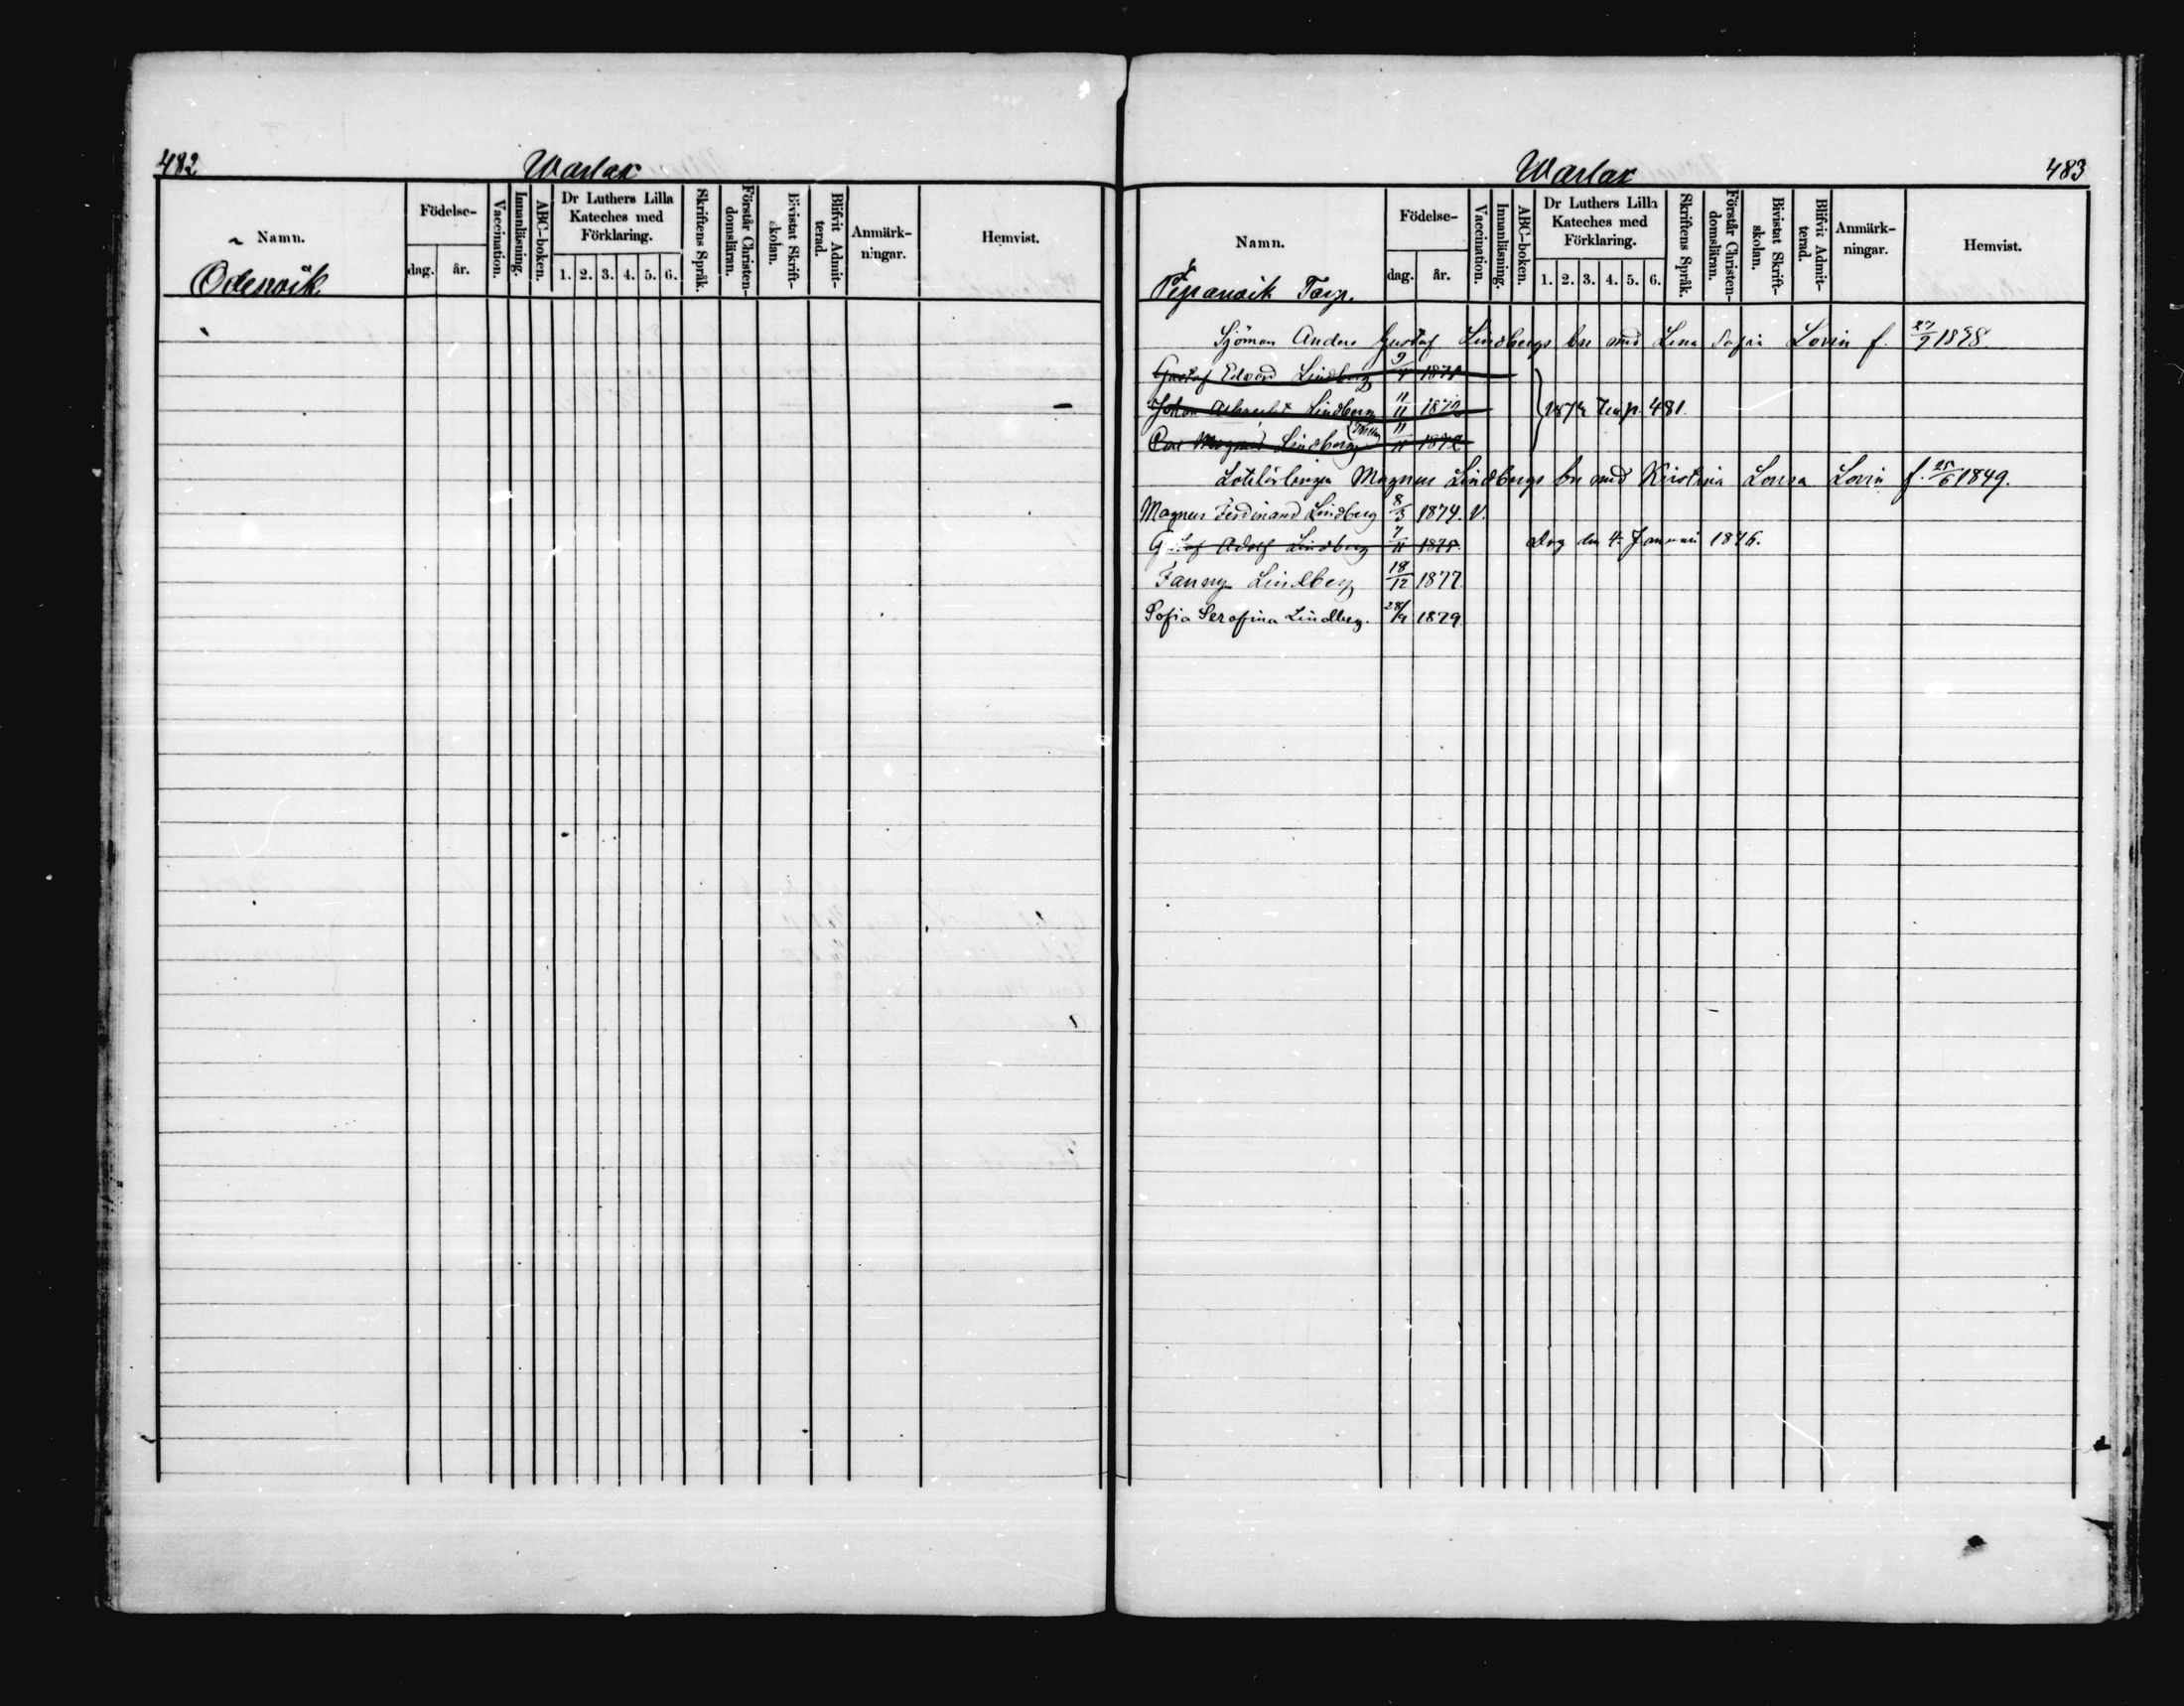 482
Warlax
Namn.
Födelse-
dag.
år.
Vaccination.
Innanläsning.
ABC-boken.
Dr Luthers Lilla
Kateches med
Förklaring.
1. 2. 3. 4. 5. 6.
Skriftens Språk.
Förstår Christen-
domsläran.
Bivistat Skrift-
skolan.
Blifvit Admit-
terad.
Anmärk-
ningar.
Hemvist.
Odesvik
Warlax
483
Namn.
Födelse-
dag.
år.
Vaccination.
Innanläsning.
ABC-boken.
Dr Luthers Lilla
Kateches med
Förklaring.
1. 2. 3. 4. 5. 6.
Skriftens Språk.
Förstår Christen-
domsläran.
Bivistat Skrift-
skolan.
Blifvit Admit-
terad.
Anmärk-
ningar.
Hemvist.
Torp.
Sjöman Anders Gustaf Lindbergs bn med Lena Sofia Lovin f.
Gustaf Edvard Lindberg 1871
Johan Lindberg 11/11 1872
} 1874 pag. 481.
Carl Magnus Lindberg 11/11 1872
Magnus Lindbergs bn med Kristina Lovisa Lovin f. 25/6 1849.
Magnus Ferdinand Lindberg 8/3 1874. V.
Gustaf Adolf Lindberg 7/11 1875. Dog den 4 Januari 1876.
Fanny Lindberg 18/12 1877.
Sofia Serafina Lindberg. 1879.